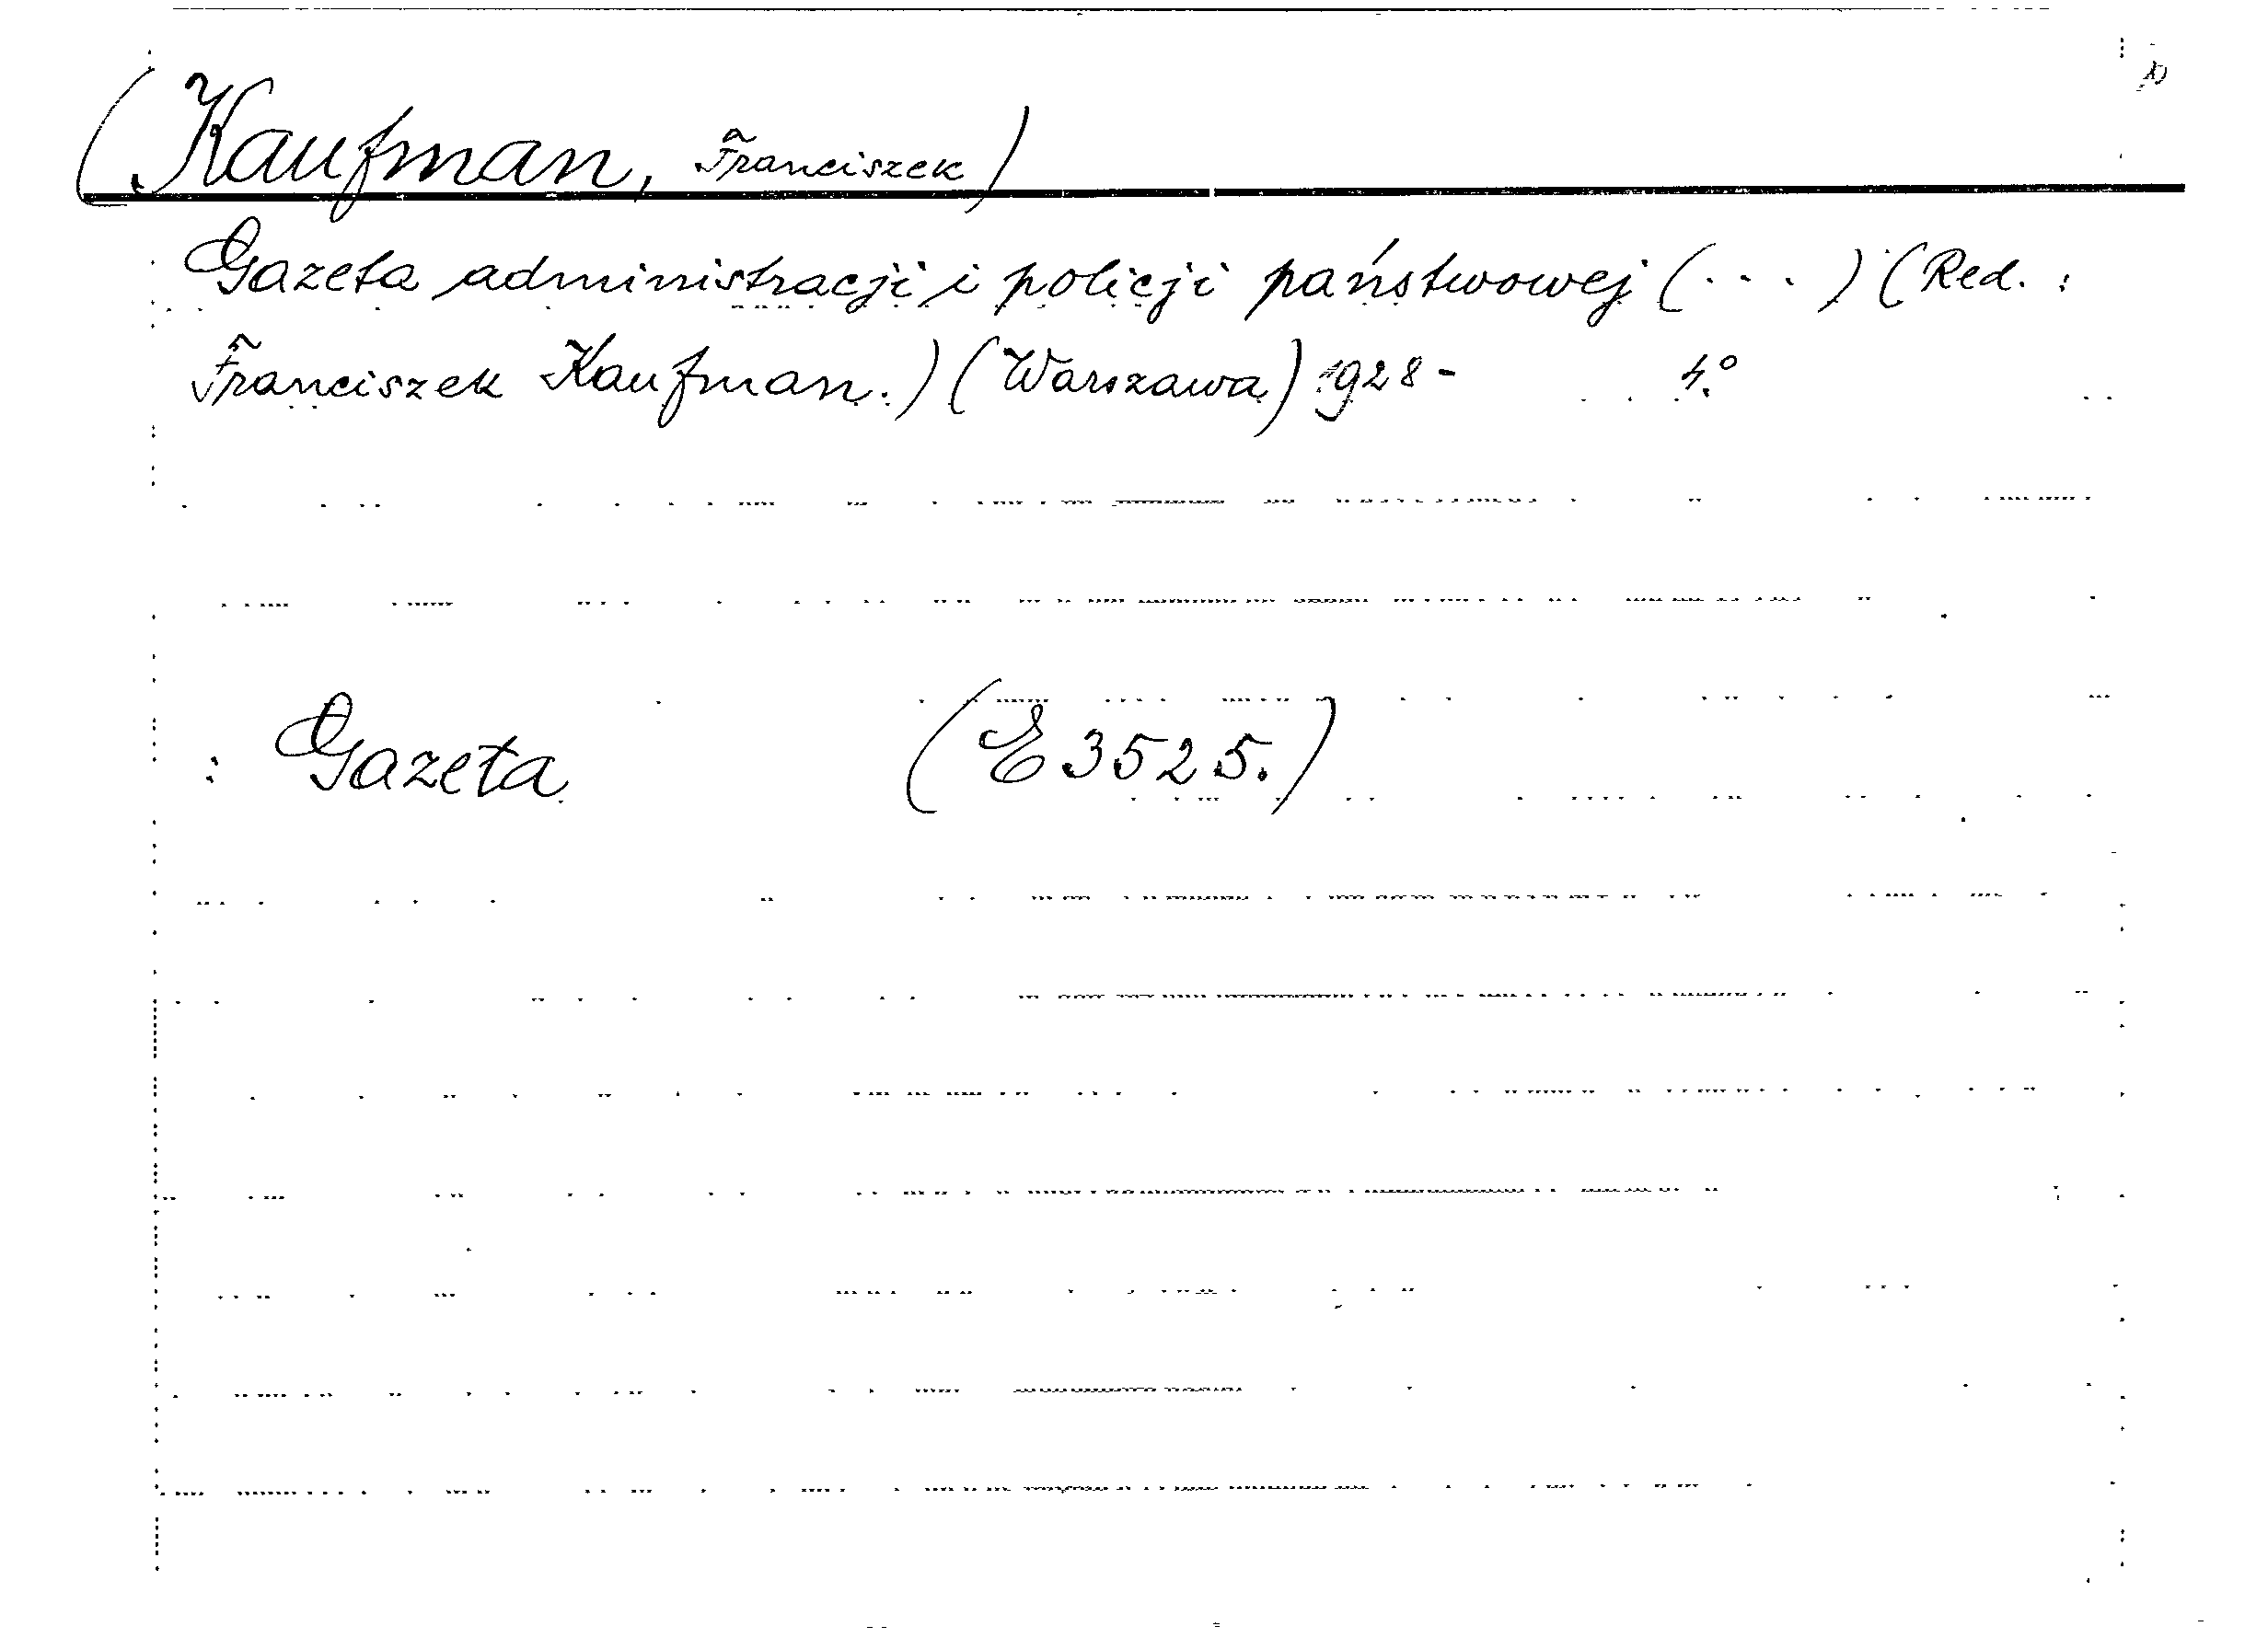 (Kaufman, Franciszek)
Gazeta administracji i policji państwowej (...) (Red. :
Franciszek Kaufman.) (Warszawa) 1928- 4.°
: Gazeta (E 3525.)